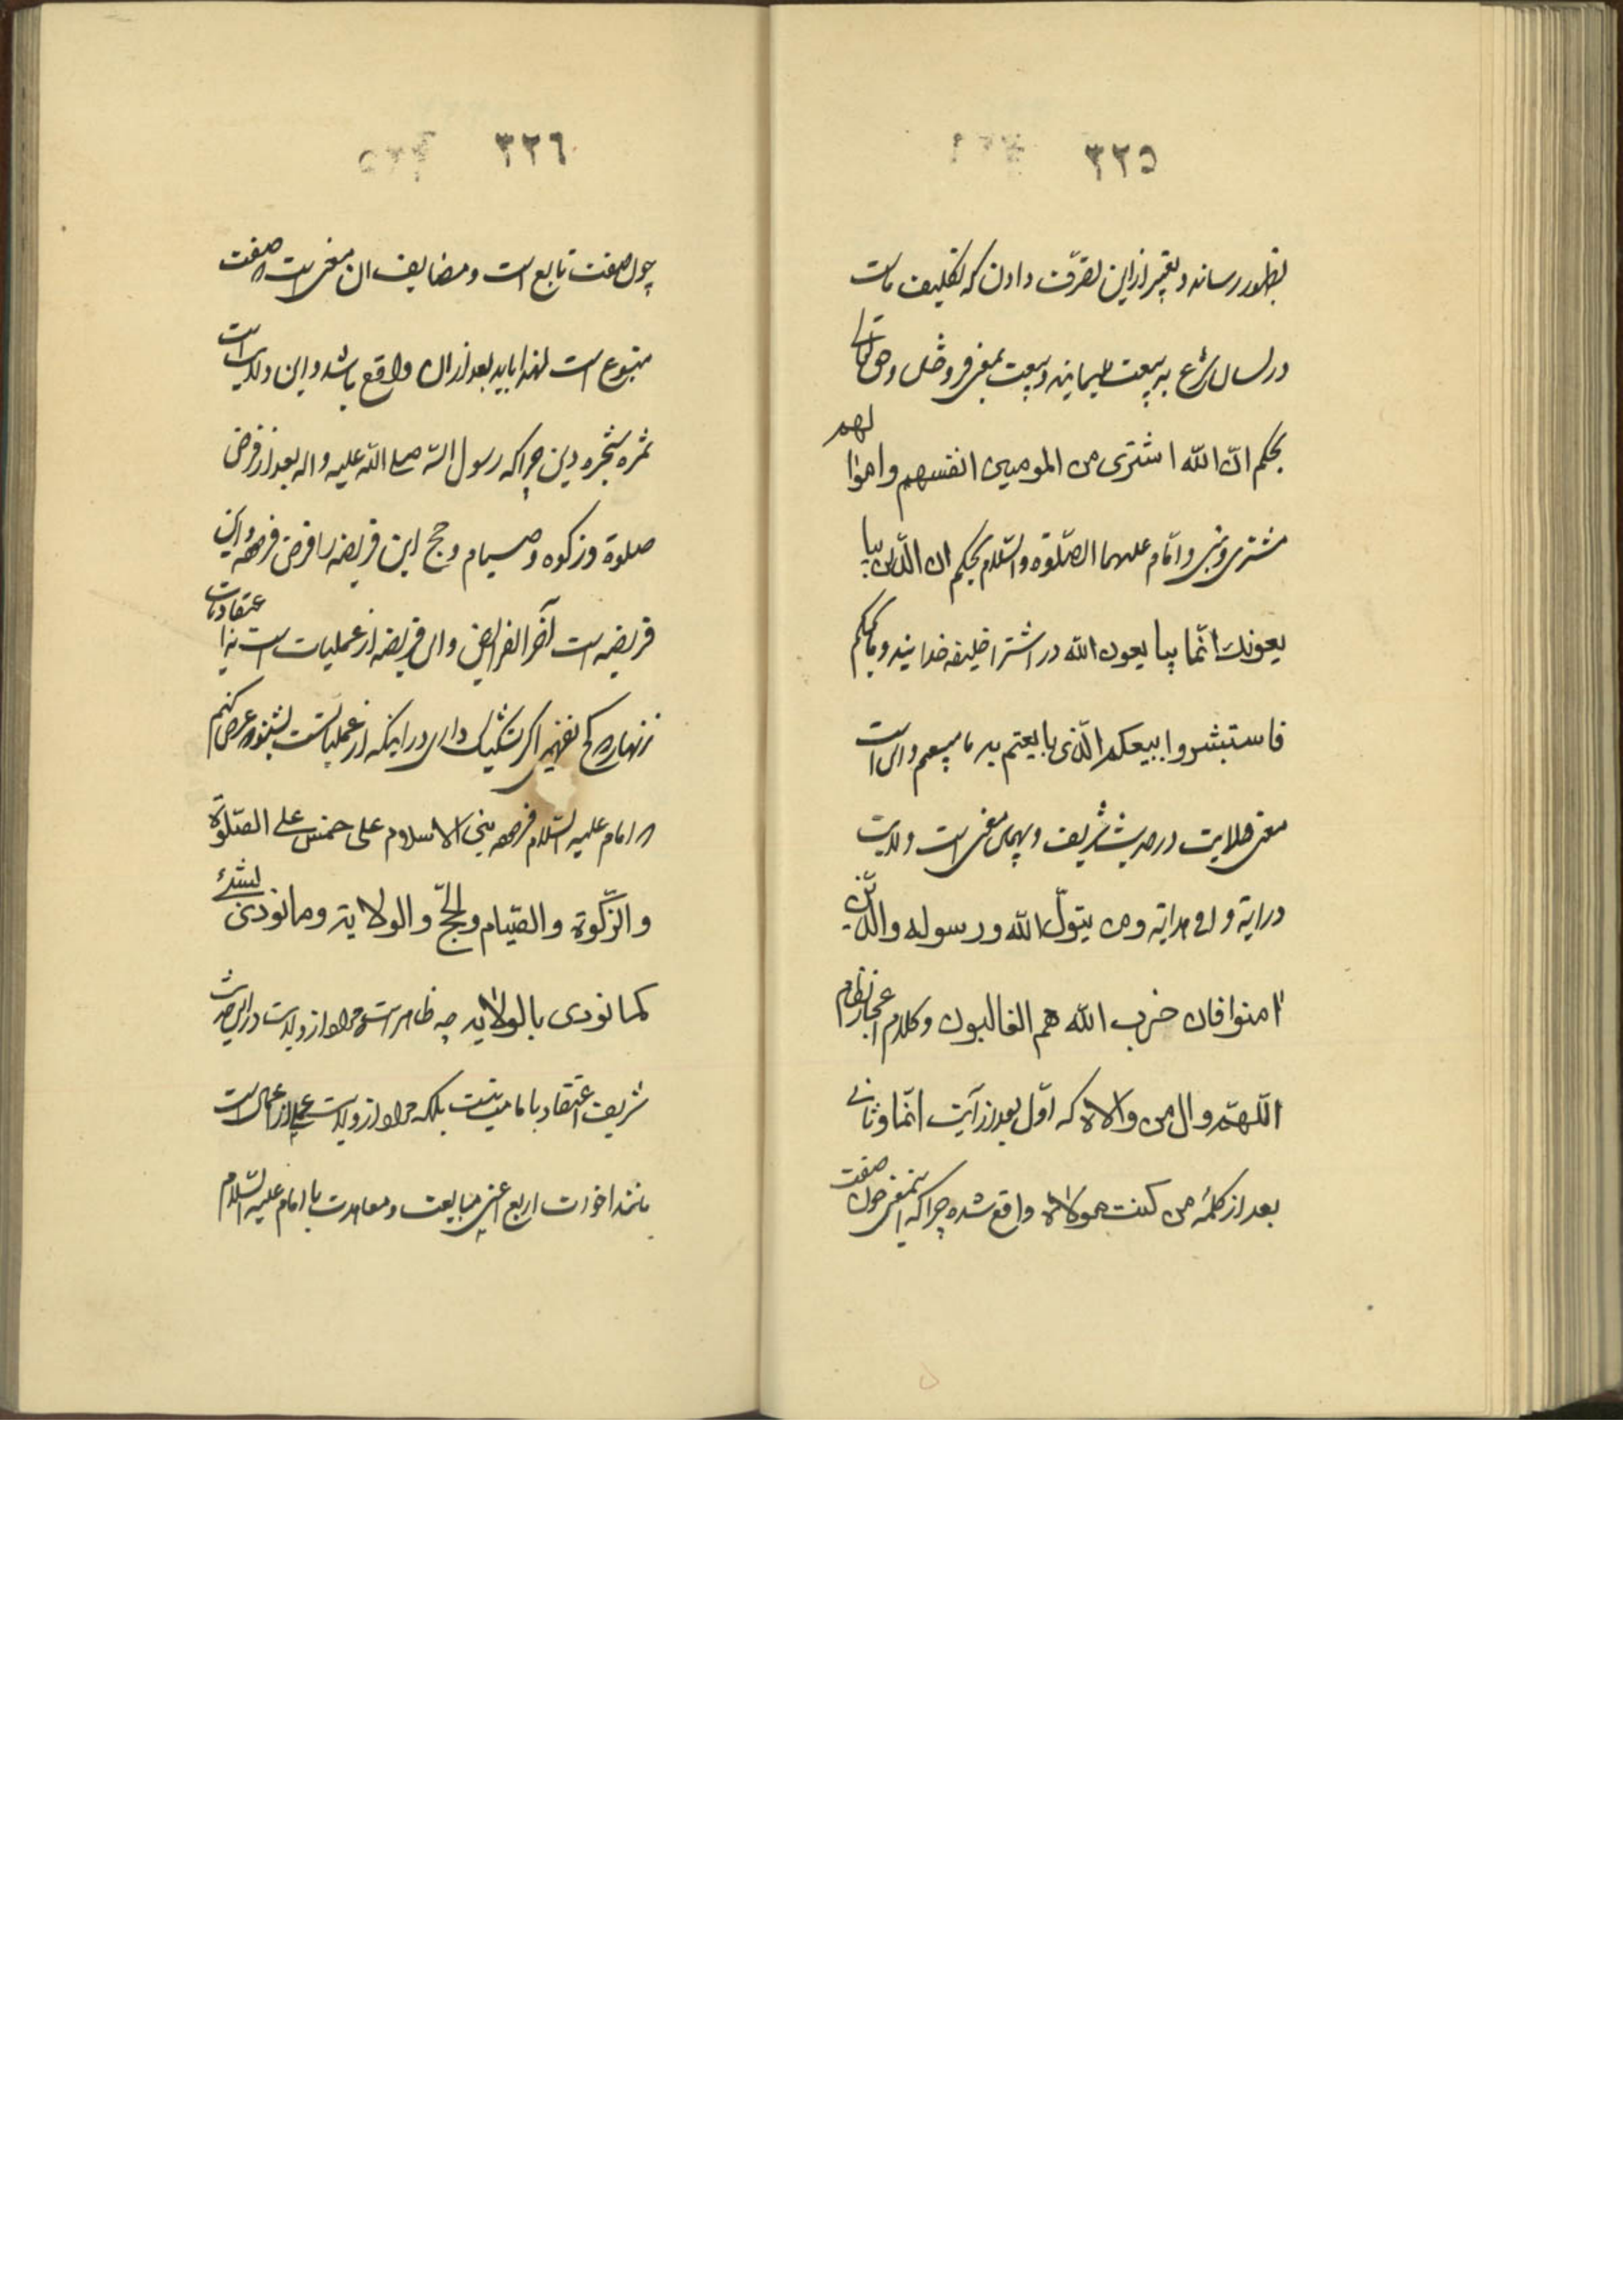 ٣٢٥
بظهور رساند و تعبیر از این تصرّف دادن که تکلیف ماست
در لسان شرع به بیعت ایمانیه و بیعت بمعنی فروختن و حق تعالی
بحکم انّ الله اشتری من المومنین انفسهم و اموالهم
مشتری و نبی و امام علیهما الصّلوة والسّلام بحکم ان الّذین یبا
یعونک انّما یبایعون الله در اشترا خلیفه خدایند و ما بحکم
فاستبشروا ببیعکم الّذی بایعتم به ما بیعیم و این است
معنی ولایت در حدیث شریف و بهمان معنی است ولایت
در آیة وافی هدایة و من یتولّ الله و رسوله والّذین
امنوا فان حزب الله هم الغالبون و کلام اعجاز نظام
اللّهمّ وال من والاه که اوّل بعد از آیت انّما و ثانی
بعد از کلمه من کنت مولاه واقع شده چرا که اینمعنی چون صفت
٣٢٦
چون صفت تابع است و مضایف ان معنی است که صفت
متبوع است لهذا باید بعد از ان واقع باشد و این ولایت است
ثمره شجره دین چرا که رسول الله صلی الله علیه و اله بعد از فرض
صلوة و زکوه و صیام و حج این فریضه را فرض فرموده و این
فریضه است آخر الفرایض و این فریضه از عملیات است نه از اعتقادیات
زنهار که کج نفهمی اگر تشکیک داری در اینکه از عملیاتست بشنو که عرض کنم
که امام علیه السّلام فرموده بنی الاسلام علی خمس علی الصّلوة
و الزّکوة و الصّیام و الحجّ و الولایة و ما نودی بشئ
کما نودی بالولایه چه ظاهر است که مراد از ولایت در این حدیث
شریف اعتقاد بامامت نیست بلکه مراد از ولایت عملی از اعمال است
مانند اخوات اربع اعنی مبایعت و معاهدت با امام علیه السّلام